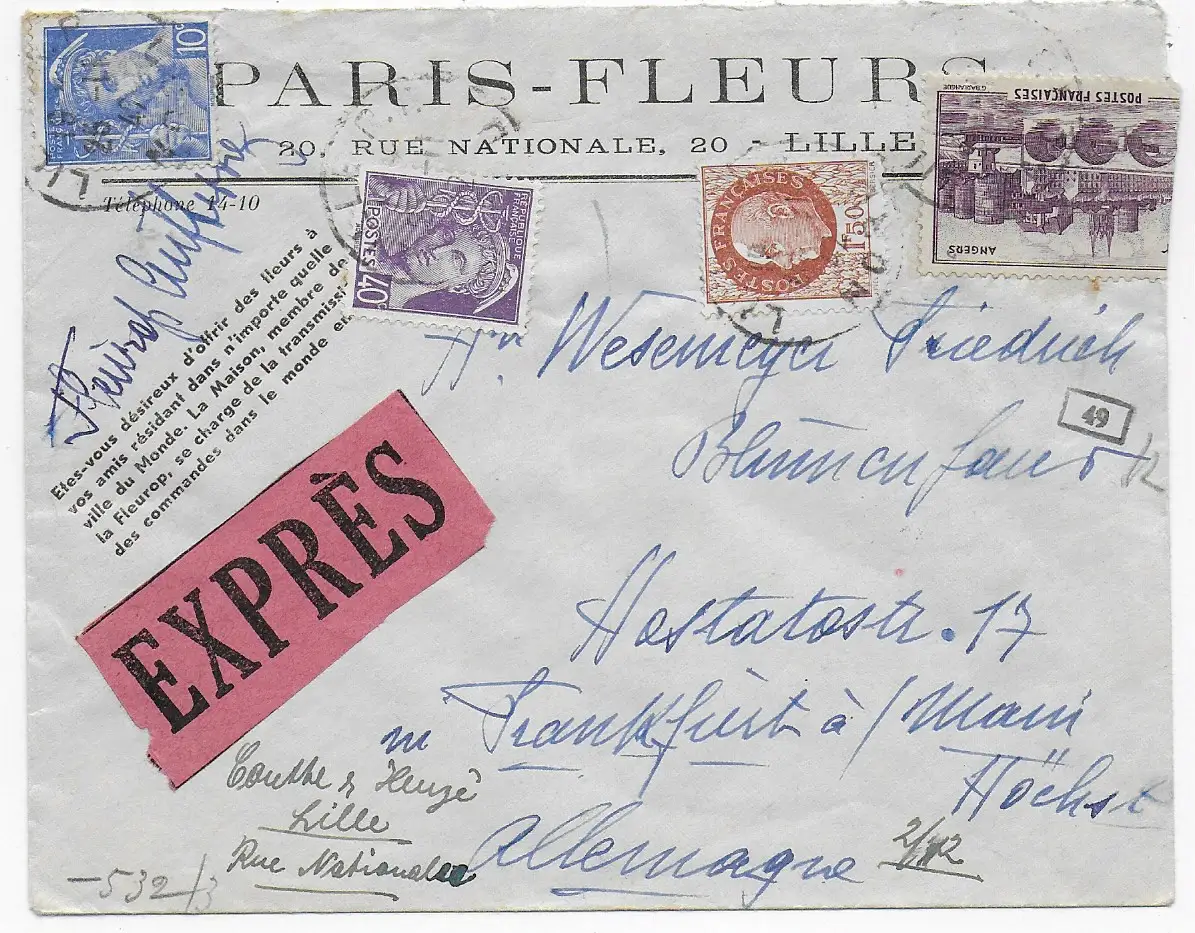 PARIS-FLEURS
20, RUE NATIONALE, 20 - LILLE
Téléphone 14-10
Etes-vous désireux d'offrir des fleurs à
vos amis résidant dans n'importe quelle
ville du Monde. La Maison, membre de
la Fleurop, se charge de la transmissi
des commandes dans le monde e
10c
POSTES
FRANÇAISES
RÉPUBLIQUE
FRANÇAISE
POSTES
40c
POSTES FRANÇAISES
1F50
POSTES FRANÇAISES
ANGERS
EXPRÈS
Wesemeyer Friedrich
49
Hostatostr. 17
Frankfürt à/Main
Höchst
Allemagne
Lille
Rue Nationale
532/3